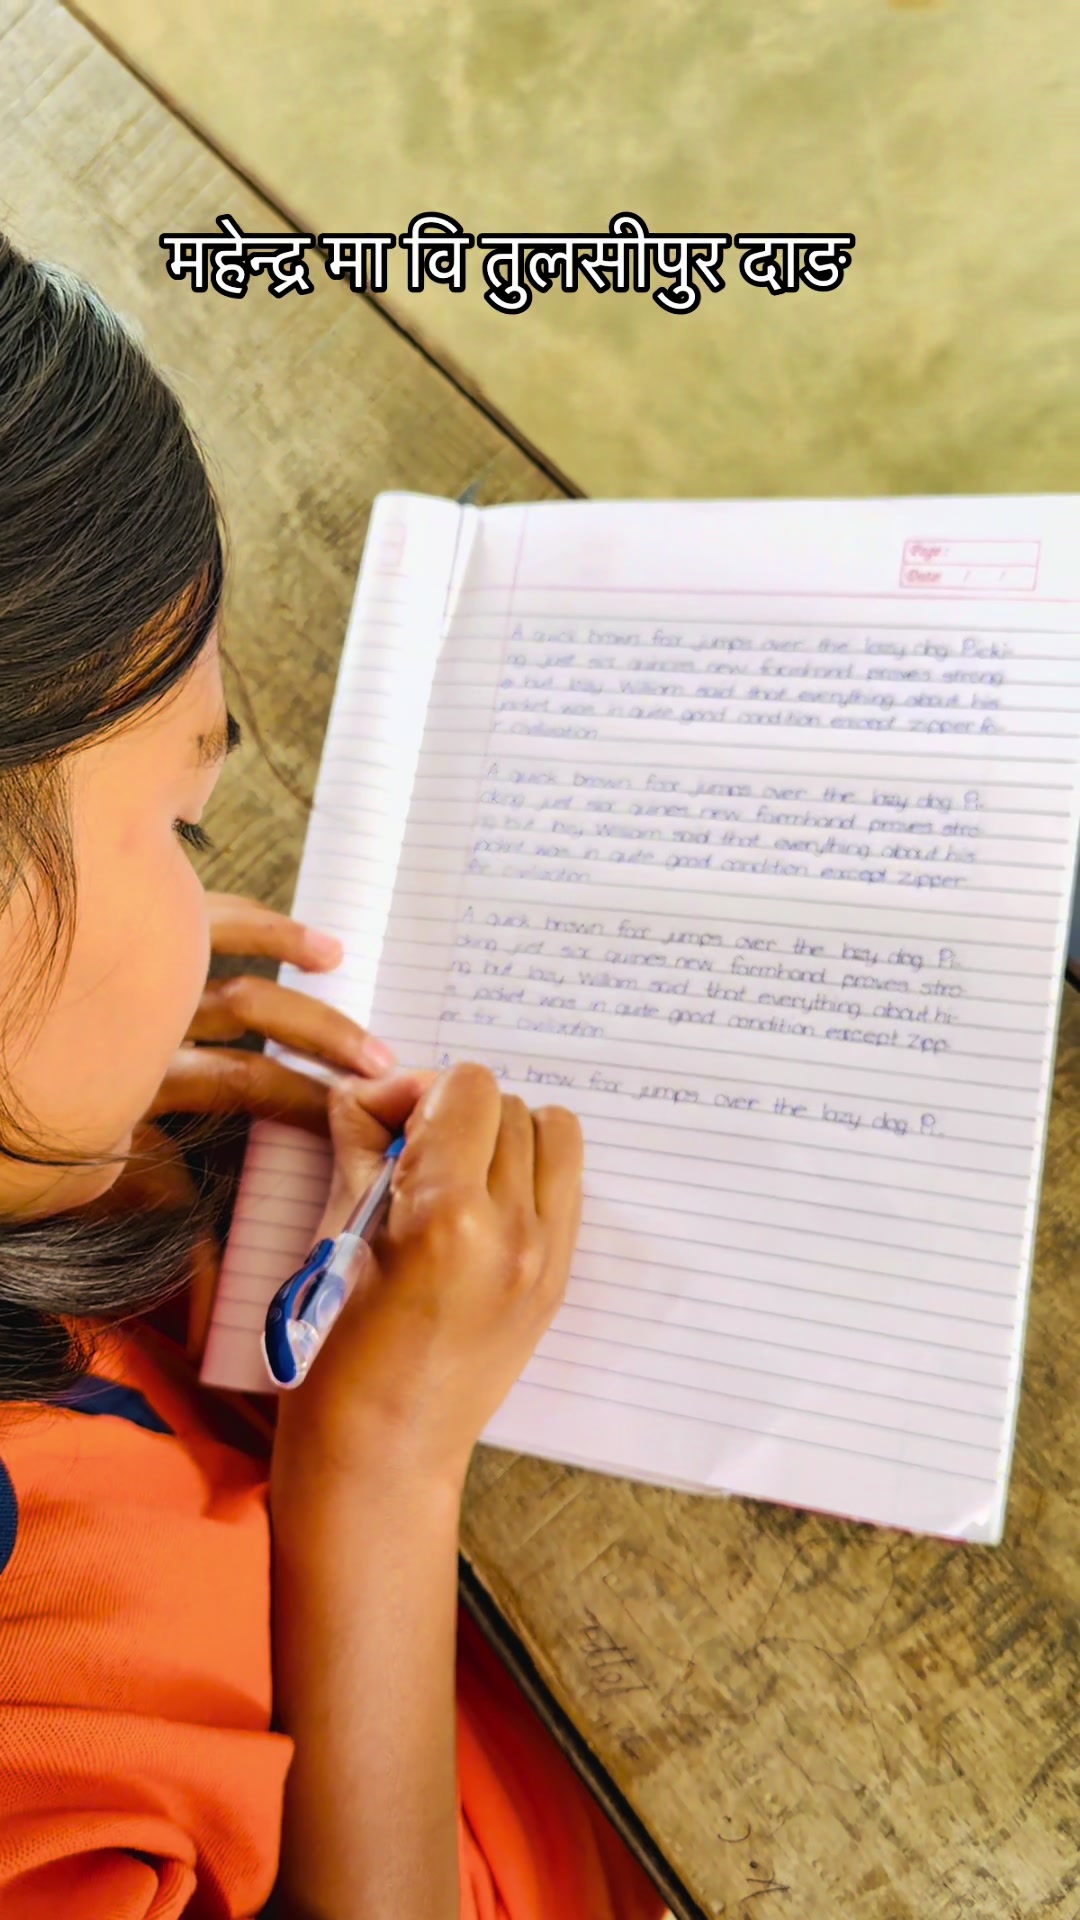 महेन्द्र मा वि तुलसीपुर दाङ
Page :
Date: / /
A quick brown fox jumps over the lazy dog Picki-
ng just six quinces new farmhand proves strong
e but lazy William said that everything about his
jacket was in quite good condition except zipper fo-
r civilization
A quick brown fox jumps over the lazy dog Pi-
cking just six quines new farmhand proves stro-
ng but lazy William said that everything about his
jacket was in quite good condition except zipper
for civilization
A quick brown fox jumps over the lazy dog Pi-
cking just six quines new farmhand proves stro-
ng but lazy William said that everything about hi-
s jacket was in quite good condition except zipp-
er for civilization
A brow fox jumps over the lazy dog Pi-